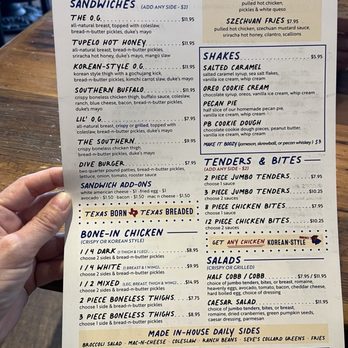 SANDWICHES
(ADD ANY SIDE - $2)
THE O.G. $11.95
all-natural breast, topped with coleslaw,
bread-n-butter pickles, duke's mayo
TUPELO HOT HONEY $11.95
all-natural breast, bread-n-butter pickles,
sriracha hot honey, duke's mayo, mangu slaw
KOREAN-STYLE O.G.
korean style thigh with a gochujang kick,
bread-n-butter pickles, kimchi carrot slaw, duke's mayo
SOUTHERN BUFFALO
crispy boneless chicken thigh, buffalo sauce, coleslaw,
ranch, blue cheese, bacon, bread-n-butter pickles,
duke's mayo
LIL' O.G.
all-natural breast, crispy or grilled, topped with
coleslaw, bread-n-butter pickles, duke's mayo
THE SOUTHERN
crispy boneless chicken thigh,
bread-n-butter pickles, duke's mayo
DIVE BURGER $11.95
two quarter pound patties, bread-n-butter pickles,
lettuce, onion, tomato, rooster sauce
SANDWICH ADD-ONS
white american cheese - $1 fried egg - $1
avocado - $1.50 bacon - $1.50 mac n cheese - $1.50
TEXAS BORN TEXAS BREADED
BONE-IN CHICKEN
(CRISPY OR KOREAN STYLE)
1/4 DARK (1 THIGH & 1 LEG) $8.95
choose 2 sides & bread-n-butter pickles
1/4 WHITE (1 BREAST & 1 WING) $9.95
choose 2 sides & bread-n-butter pickles
1/2 MIXED (LEG, THIGH, BREAST & WING) $14.95
choose 2 sides & bread-n-butter pickles
2 PIECE BONELESS THIGHS $7.75
choose 1 side & bread-n-butter pickles
3 PIECE BONELESS THIGHS $8.95
choose 1 side & bread-n-butter pickles
pulled hot chicken,
pickles & white queso
SZECHUAN FRIES $11.95
pulled hot chicken, szechuan mustard sauce,
sriracha hot honey, cilantro, scallions
SHAKES $5.95
SALTED CARAMEL
salted caramel syrup, sea salt flakes,
vanilla ice cream, whip cream
OREO COOKIE CREAM
chocolate syrup, oreos, vanilla ice cream, whip cream
PECAN PIE
half slice of our homemade pecan pie,
vanilla ice cream, whip cream
PB COOKIE DOUGH
chocolate cookie dough pieces, peanut butter,
vanilla ice cream, whip cream
MAKE IT BOOZY (jameson, skrewball, or pecan whiskey) $3
TENDERS & BITES
(ADD ANY SIDE - $2)
2 PIECE JUMBO TENDERS $7.25
choose 1 sauce
3 PIECE JUMBO TENDERS $10.25
choose 2 sauces
8 PIECE CHICKEN BITES $7.95
choose 1 sauce
12 PIECE CHICKEN BITES $10.25
choose 2 sauces
GET ANY CHICKEN KOREAN-STYLE
SALADS
(CRISPY OR GRILLED)
HALF COBB / COBB $7.95 / $11.95
choice of jumbo tenders, bites, or breast, romaine,
heavenly eggs, avocado, tomato, bacon, cheddar cheese,
hard boiled egg, choice of dressing
CAESAR SALAD $11.95
choice of jumbo tenders, bites, or breast,
romaine, dried cranberries, green pumpkin seeds,
caesar dressing, parmesan
MADE IN-HOUSE DAILY SIDES
BROCCOLI SALAD - MAC-N-CHEESE - COLESLAW - RANCH BEANS - SEVE'S COLLARD GREENS - FRIES